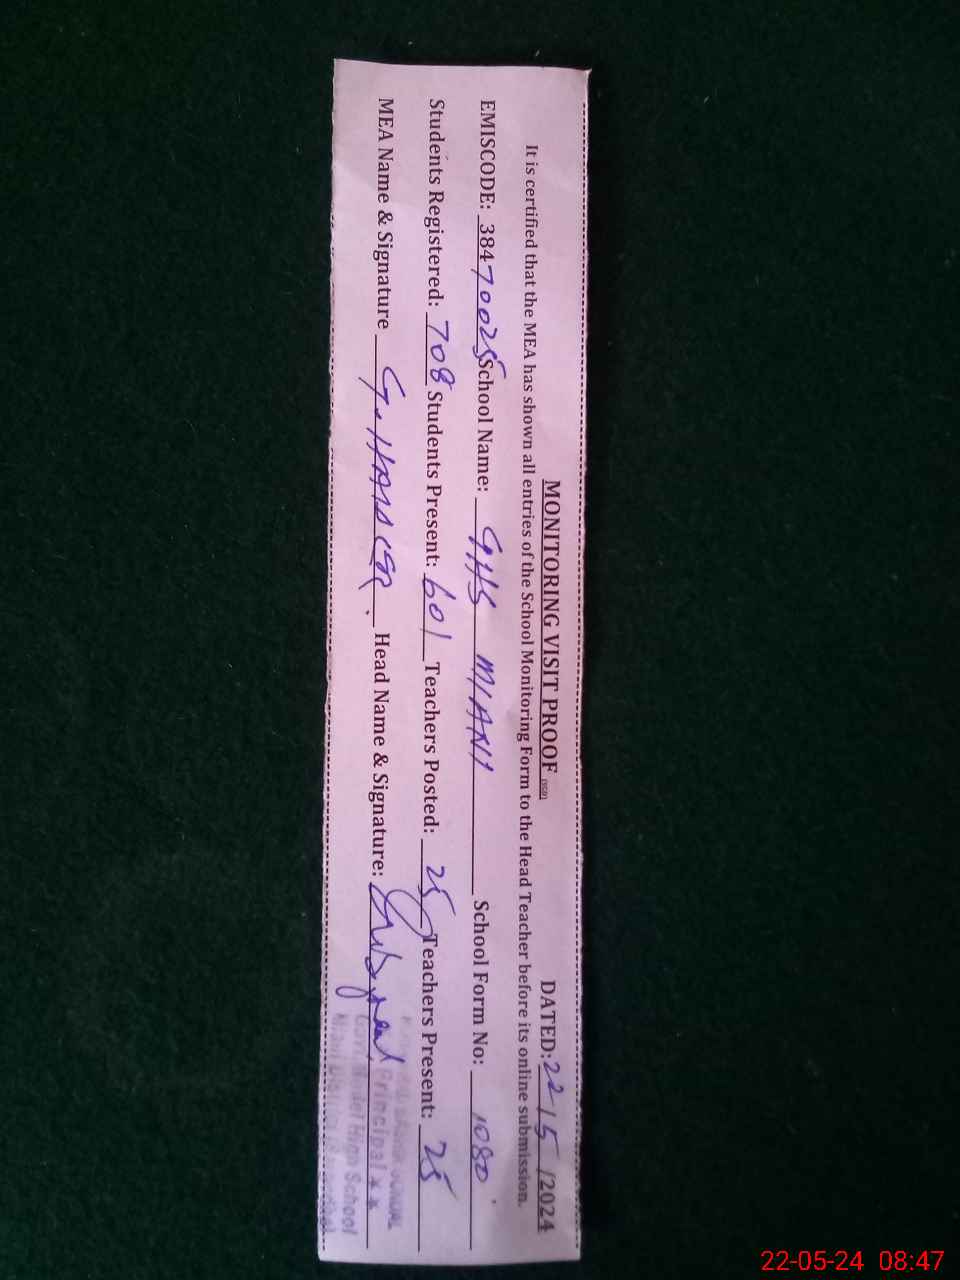 MONITORING VISIT PROOF DATED: 22/5/2024
It is certified that the MEA has shown all entries of the School Monitoring Form to the Head Teacher before its online submission.
EMISCODE: 38470025 School Name: GHS MIANI School Form No: 1080
Students Registered: 708 Students Present: 601 Teachers Posted: 25 Teachers Present: 25
MEA Name & Signature Head Name & Signature:
Principal
Govt. Model High School
22-05-24 08:47